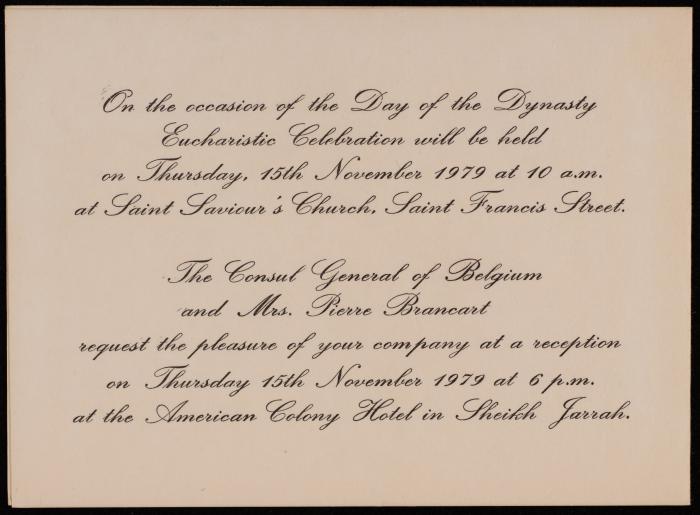 On the occasion of the Day of the Dynasty
Eucharistic Celebration will be held
on Thursday, 15th November 1979 at 10 a.m.
at Saint Saviour's Church, Saint Francis Street.
The Consul General of Belgium
and Mrs. Pierre Brancart
request the pleasure of your company at a reception
on Thursday 15th November 1979 at 6 p.m.
at the American Colony Hotel in Sheikh Jarrah.